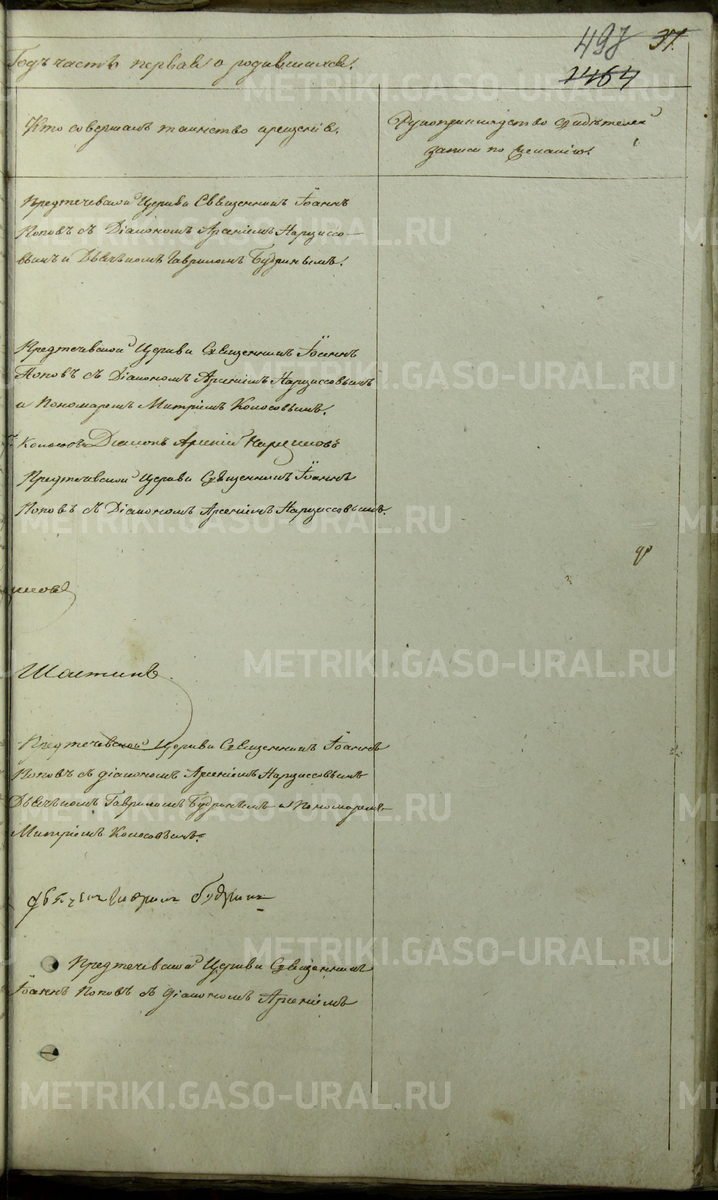 498 37.
1464
Годъ часть первая о родившихся.
Кто совершалъ таинство крещенія.
Рукоприкладство свидѣтелей
записи по желанію.
Предтечевской Церкви Священникъ Іоаннъ
Поповъ съ Діакономъ Арсеніемъ Нарциссо-
вымъ и Дьячкомъ Гавриломъ Будринымъ.
Предтечевской Церкви Священникъ Іоаннъ
Поповъ съ Діакономъ Арсеніемъ Нарциссовымъ
и Пономаремъ Митріемъ Колосовымъ.
Колосовъ Діаконъ Арсеній Нарциссовъ
Предтечевской Церкви Священникъ Іоаннъ
Поповъ съ Діакономъ Арсеніемъ Нарциссовымъ.
Шастинъ
Предтечевской Церкви Священникъ Іоаннъ
Поповъ съ діакономъ Арсеніемъ Нарциссовымъ
Дьячкомъ Гавриломъ Будринымъ и Пономаремъ
Митріемъ Колосовымъ.
Дьячекъ Гаврилъ Будринъ
Предтечевской Церкви Священникъ
Іоаннъ Поповъ съ діакономъ Арсеніемъ
METRIKI.GASO-URAL.RU